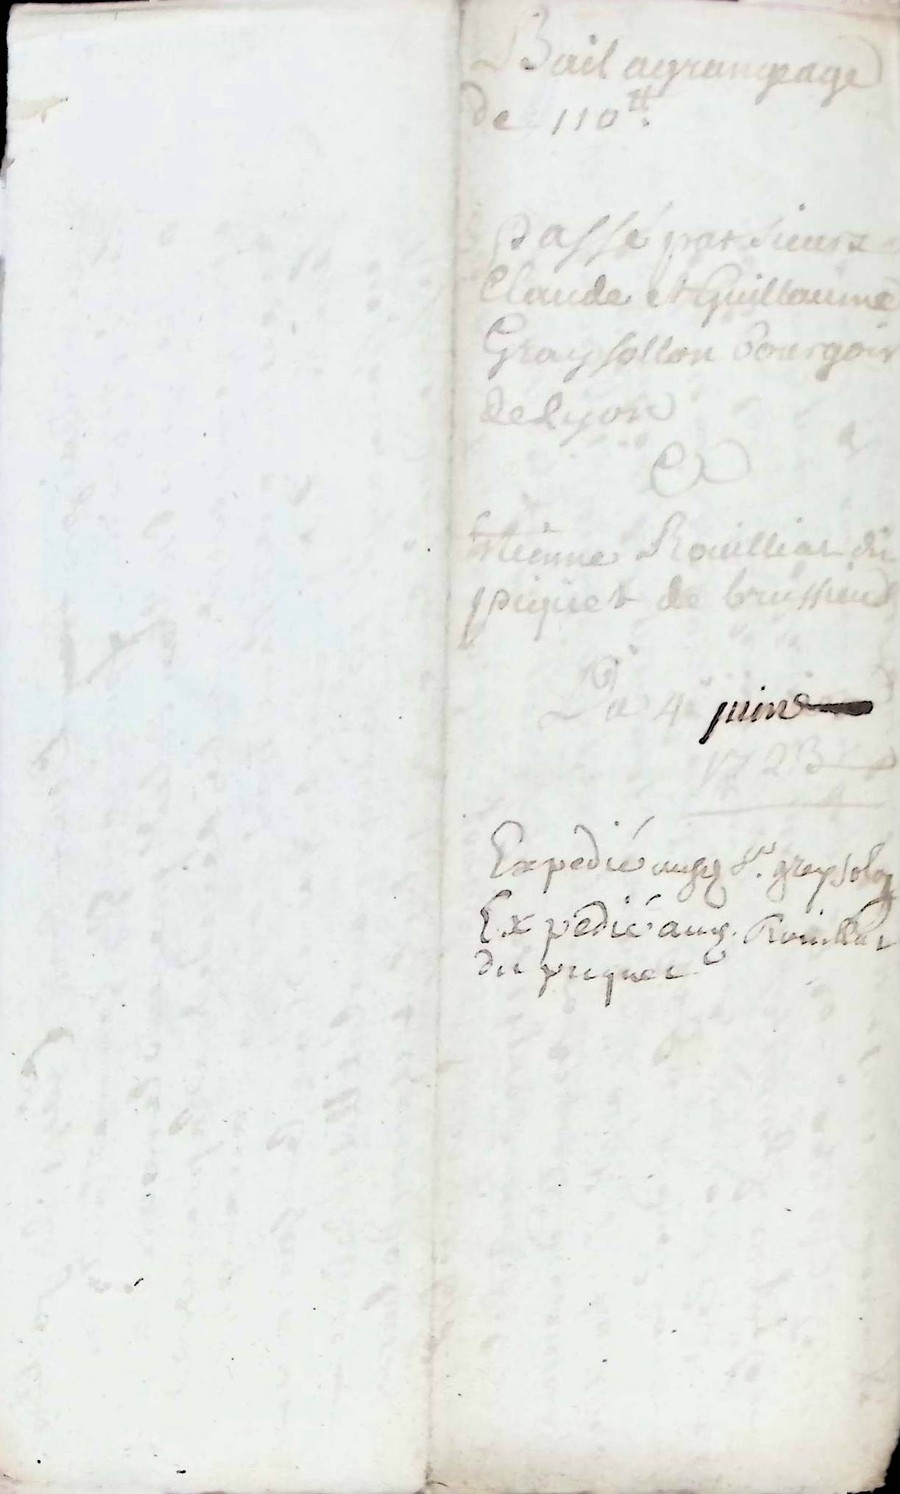 Bail agrangeage
de 110tt.
passé par sieurs
Claude et Guillaume
Graysollon bourgois
de Lyon
Et
Etienne Rouilliat du
piquet de brussieud
Du 4e juine
1723
Expedié auxd srs. greysolon
Expedié aud. Rouillat
du piquet